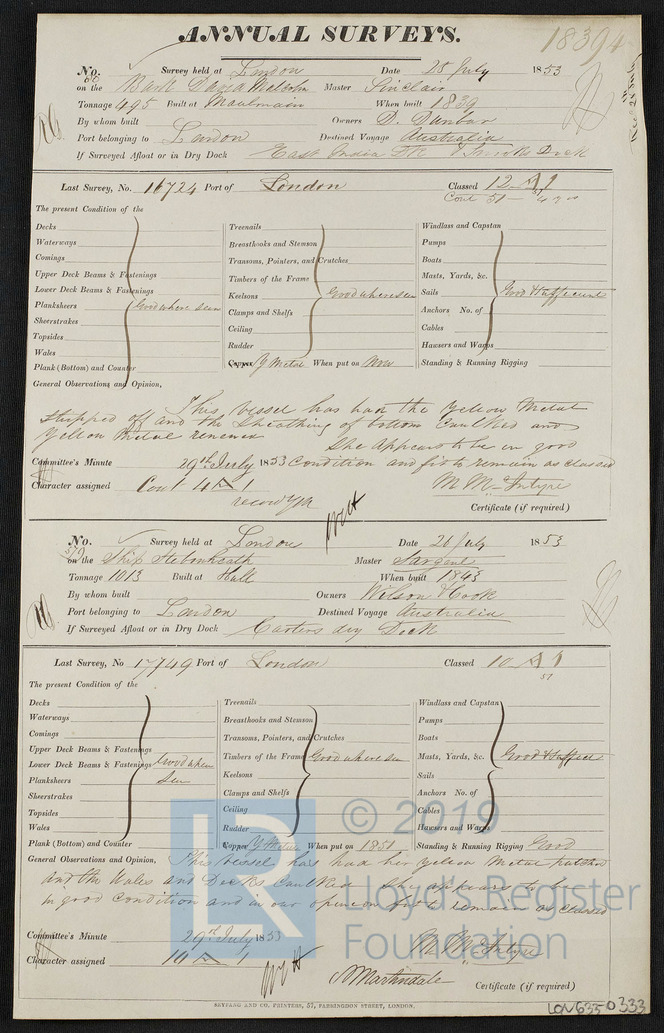 ANNUAL SURVEYS.
18394
No. 80 Survey held at London Date 28 July 1853
on the Bark David Malcolm Master Sinclair
Tonnage 495 Built at Maulmain When built 1839
By whom built Owners D. Dunbar
Port belonging to London Destined Voyage Australia
If Surveyed Afloat or in Dry Dock East India Dk & Dock
Last Survey, No. 16724 Port of London Classed 12 A 1
Cont 51
The present Condition of the
Decks Treenails Windlass and Capstan
Waterways Breasthooks and Stemson Pumps
Comings Transoms, Pointers, and Crutches Boats
Upper Deck Beams & Fastenings Timbers of the Frame Masts, Yards, &c.
Lower Deck Beams & Fastenings Keelsons Good where seen Sails Good & sufficient
Planksheers Good where seen Clamps and Shelfs Anchors No. of
Sheerstrakes Ceiling Cables
Topsides Rudder Hawsers and Warps
Wales Copper Y Metal When put on Now Standing & Running Rigging
Plank (Bottom) and Counter
General Observations and Opinion,
This vessel has had the Yellow Metal
stripped off and the Sheathing of bottom Caulked and
Yellow Metal renewed She appears to be in good
Committee's Minute 29th July 1853 Condition and fit to remain as classed
Character assigned Cont 4 A 1 M McIntyre
record YM Certificate (if required)
No. 579 Survey held at London Date 26 July 1853
on the Ship Stebonheath Master Sargent
Tonnage 1013 Built at Hull When built 1843
By whom built Owners Wilson & Cook
Port belonging to London Destined Voyage Australia
If Surveyed Afloat or in Dry Dock Carters dry Dock
Last Survey, No 17749 Port of London Classed 10 A 1
51
The present Condition of the
Decks Treenails Windlass and Capstan
Waterways Breasthooks and Stemson Pumps
Comings Transoms, Pointers, and Crutches Boats
Upper Deck Beams & Fastenings Timbers of the Frame Good where seen Masts, Yards, &c. Good & sufficient
Lower Deck Beams & Fastenings Good where Keelsons Sails
Planksheers seen Clamps and Shelfs Anchors No. of
Sheerstrakes Ceiling Cables
Topsides Rudder Hawsers and Warps
Wales Copper Y Metal When put on 1851 Standing & Running Rigging Good
Plank (Bottom) and Counter
General Observations and Opinion, This vessel has had her Yellow Metal patched
and the Wales and Decks Caulked appears to be
in good Condition and in our opinion fit to remain as classed
Committee's Minute 29th July 1853 M McIntyre
Character assigned 10 A 1 Martindale Certificate (if required)
SEYFANG AND CO. PRINTERS, 57, FARRINGDON STREET, LONDON.
LON635-0333
LR © 2019
Lloyd's Register
Foundation